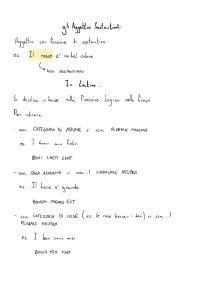 gli Aggettivi Sostantivati
Aggettivo con funzione di sostantivo
es. Il rosso è un bel colore
↳ agg. sostantivato
In Latino...
Si declina in base alla funzione logica nella frase
Per indicare:
- una CATEGORIA DI PERSONE si usa PLURALE MASCHILE
es. I buoni sono felici
BONI LAETI SUNT
- una COSA ASTRATTA si usa il SINGOLARE NEUTRO
es. Il bene è grande
BONUM MAGNUM EST
- una CATEGORIA DI COSE (es. le cose buone - i beni) si usa il
PLURALE NEUTRO
es. I beni sono miei
BONA MEA SUNT